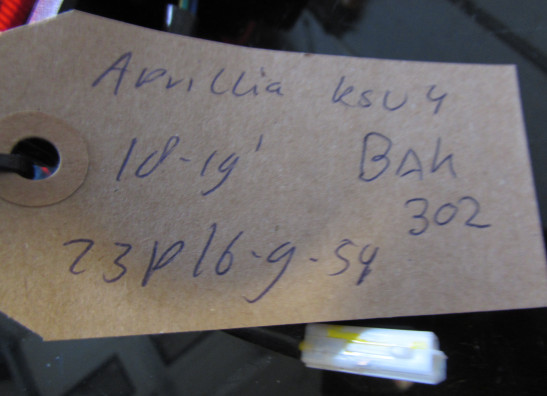 Aprillia KSU4
18-19'
BAK
302
23P16-9-S4